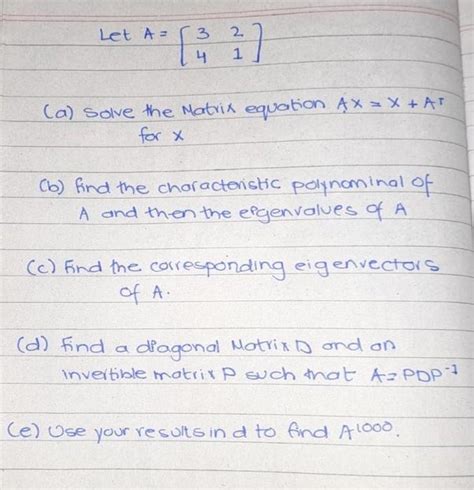 Let A = [ 3 2
4 1 ]
(a) Solve the Matrix equation AX = X + Aᵀ
for x
(b) find the characteristic polynominal of
A and then the eigenvalues of A
(c) Find the corresponding eigenvectors
of A.
(d) Find a diagonal Matrix D and an
invertible matrix P such that A=PDP⁻¹
(e) Use your results in d to find A¹⁰⁰⁰.